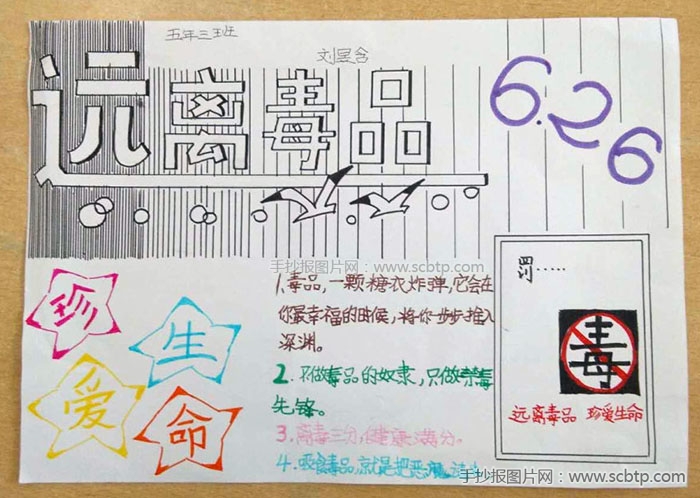 五年三班
刘昱含
远离毒品
6.26
手抄报图片网:www.scbtp.com
1.毒品,一颗糖衣炸弹,它会在
你最幸福的时候,将你步步推入
深渊。
2.不做毒品的奴隶,只做禁毒
先锋。
3.离毒三分,健康满分。
4.吸食毒品,就是把恶魔请
珍
爱
生
命
毒
远离毒品 珍爱生命
手抄报图片网:www.scbtp.com